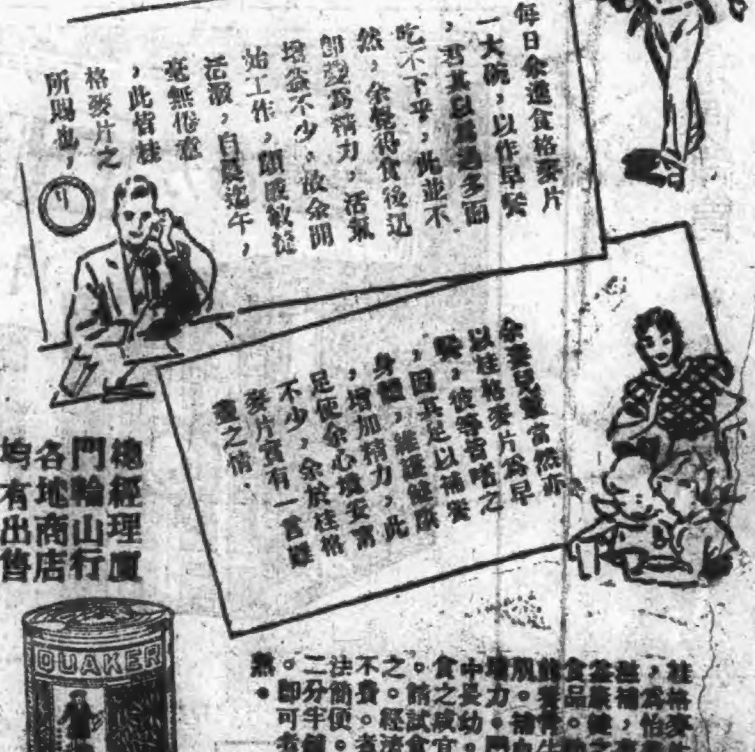 每日余進食格麥片
一大碗，以作早餐
，君其以爲過多而
吃不下乎，此並不
然，余覺得食後迅
卽變爲精力，活氣
增益不少，故余開
始工作，頭腦敏捷
活潑，自晨迄午，
毫無倦意
，此皆桂
格麥片之
所賜也，
余妻兒輩當然亦
以桂格麥片爲早
餐，彼等皆嗜之
，因其足以補養
身體，維護健康
，增加精力，此
足使余心境安甯
不少，余於桂格
麥片實有一言難
盡之情．
總經理廈
門輪山行
各地商店
均有出售
QUAKER
桂格麥
，爲怡
滋補，
益康健
食品。
肌。補血
壯力。
中長幼。
食之咸宜
。請試食
之。經濟
不費。煮
法簡便。
二分半鐘
。卽可煮
熟。